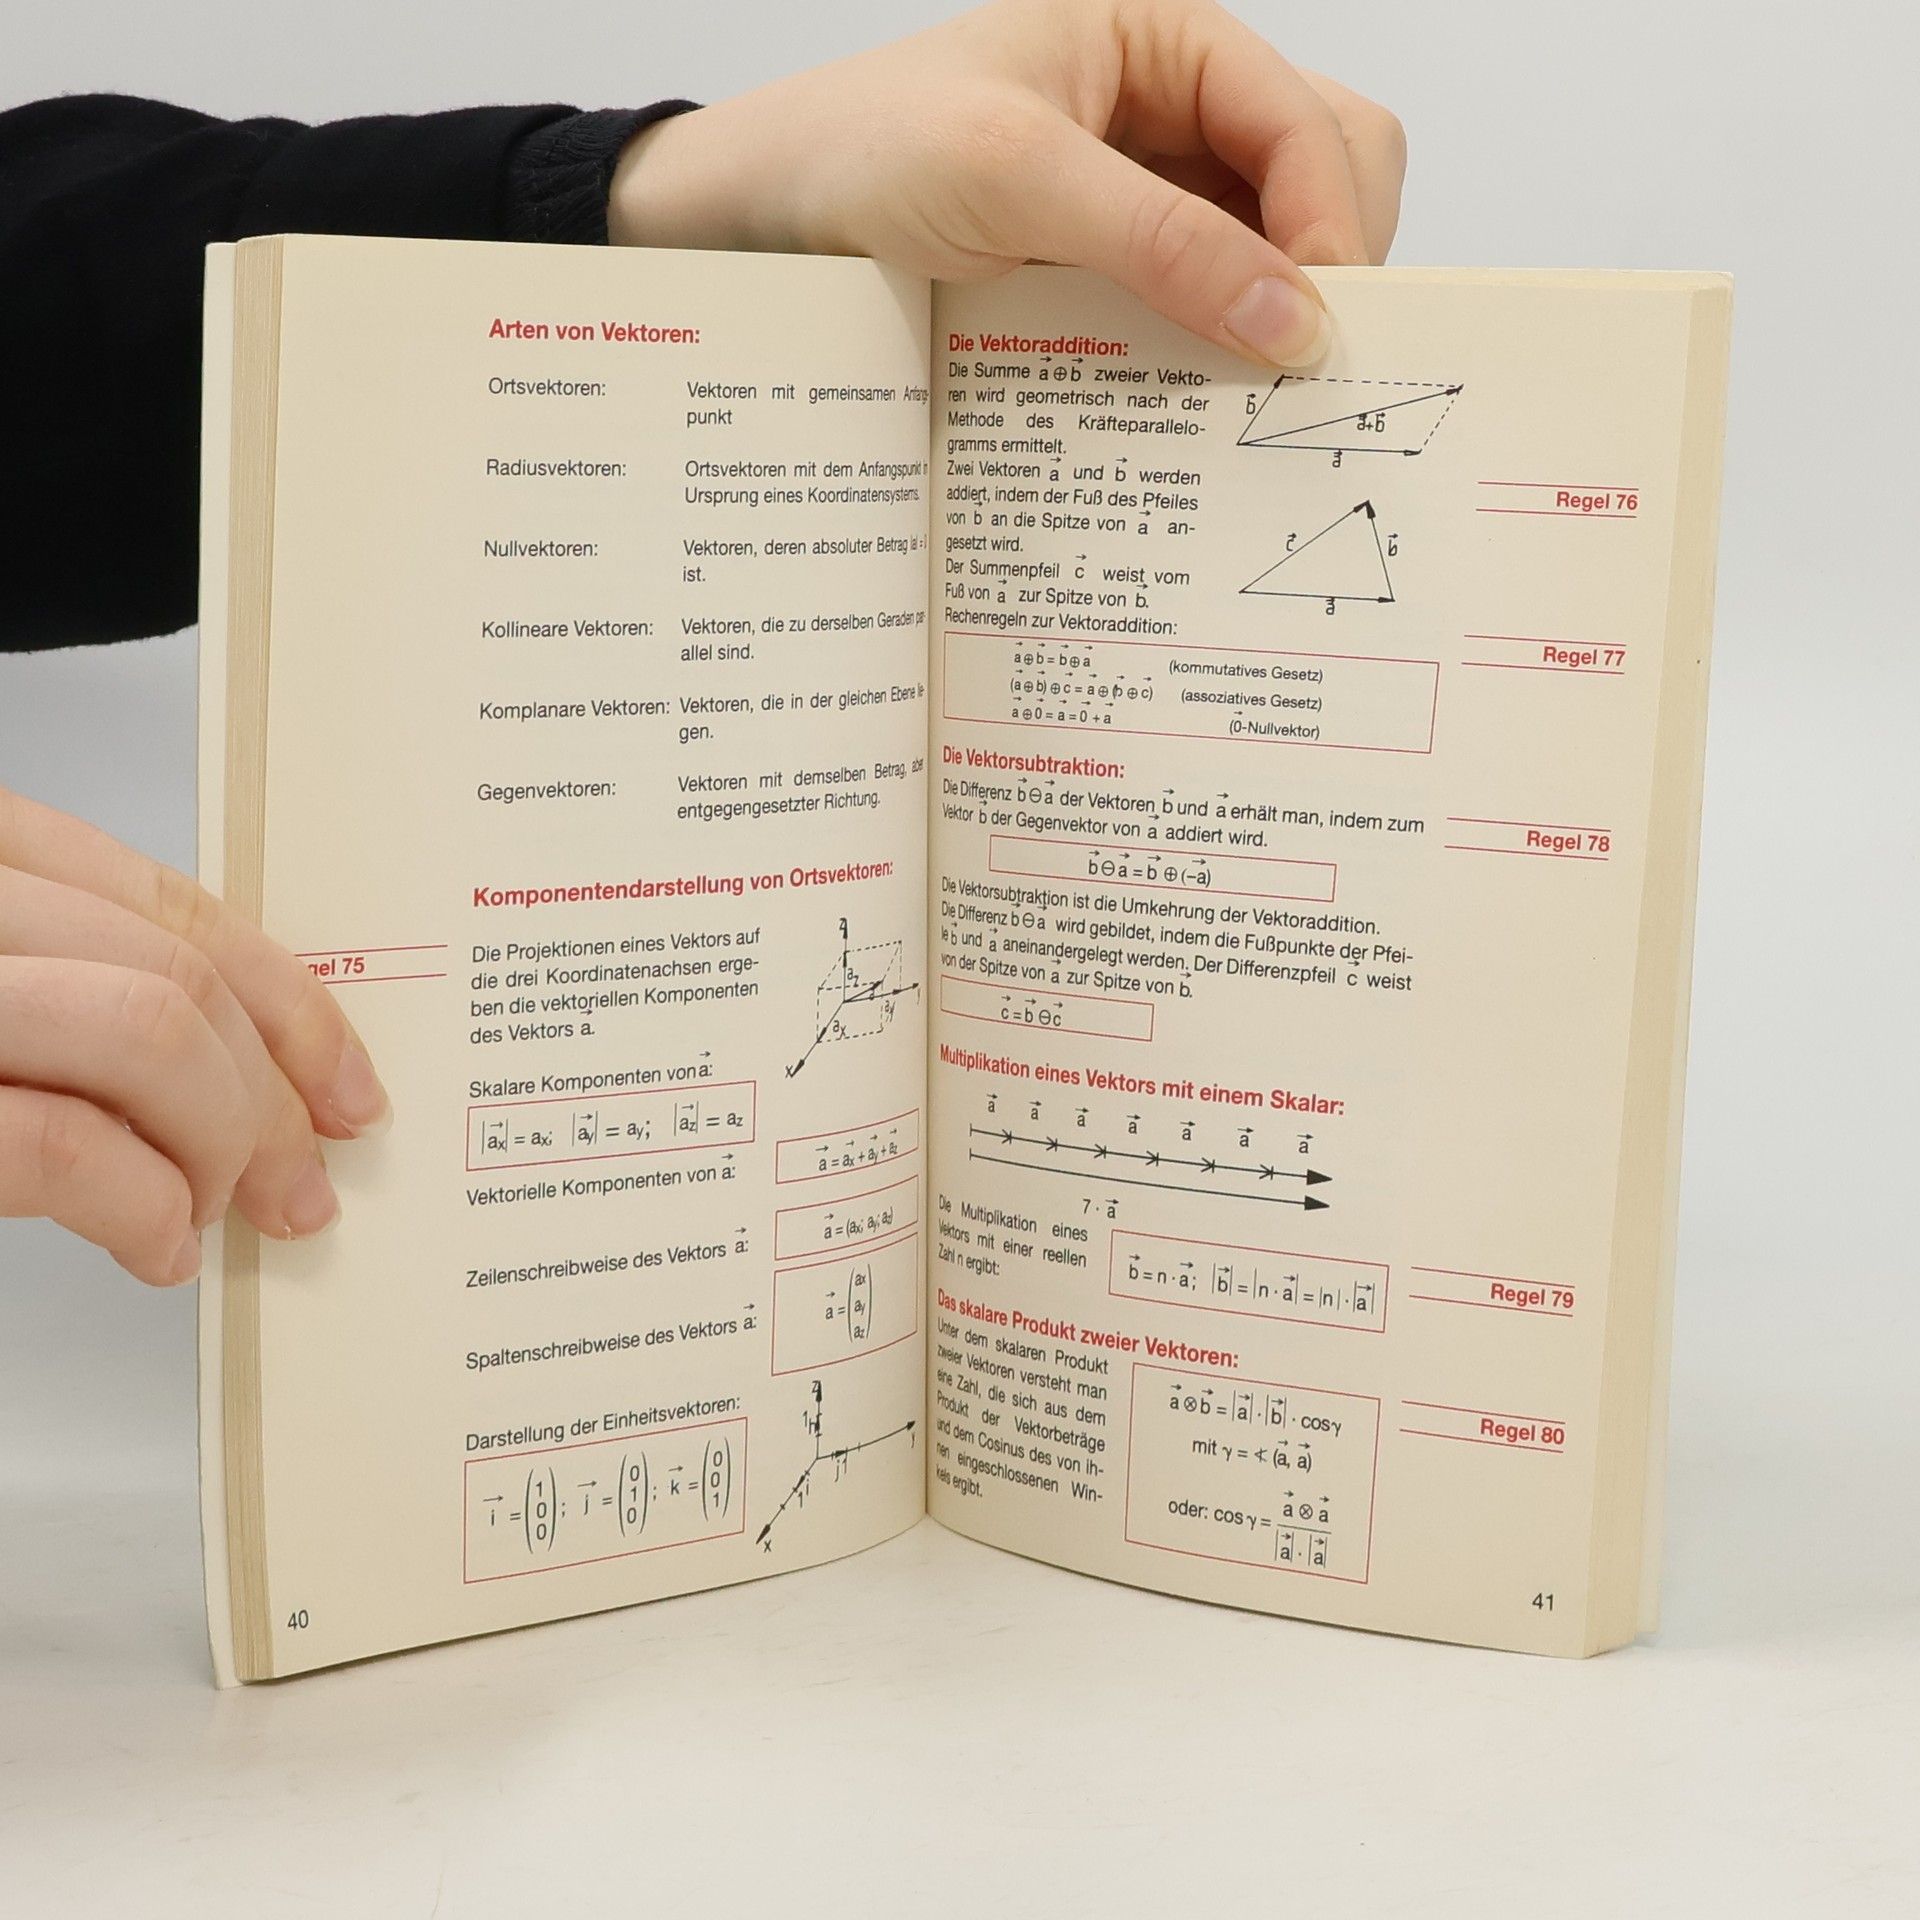 Arten von Vektoren:
Ortsvektoren: Vektoren mit gemeinsamen Anfangs-
punkt
Radiusvektoren: Ortsvektoren mit dem Anfangspunkt
Ursprung eines Koordinatensystems.
Nullvektoren: Vektoren, deren absoluter Betrag |a| = 0
ist.
Kollineare Vektoren: Vektoren, die zu derselben Geraden par-
allel sind.
Komplanare Vektoren: Vektoren, die in der gleichen Ebene lie-
gen.
Gegenvektoren: Vektoren mit demselben Betrag, aber
entgegengesetzter Richtung.
Komponentendarstellung von Ortsvektoren:
gel 75
Die Projektionen eines Vektors auf
die drei Koordinatenachsen erge-
ben die vektoriellen Komponenten
des Vektors a⃗.
z
a⃗z
a⃗
a⃗y
a⃗x
x
Skalare Komponenten von a⃗:
|a⃗x| = ax; |a⃗y| = ay; |a⃗z| = az
Vektorielle Komponenten von a⃗:
a⃗ = a⃗x + a⃗y + a⃗z
Zeilenschreibweise des Vektors a⃗:
a⃗ = (ax; ay; az)
Spaltenschreibweise des Vektors a⃗:
a⃗ = (ax ay az)
Darstellung der Einheitsvektoren:
i⃗ = (1 0 0); j⃗ = (0 1 0); k⃗ = (0 0 1)
z
y
x
40
Die Vektoraddition:
Die Summe a⃗ ⊕ b⃗ zweier Vekto-
ren wird geometrisch nach der
Methode des Kräfteparallelo-
gramms ermittelt.
b⃗
a⃗+b⃗
a⃗
Zwei Vektoren a⃗ und b⃗ werden
addiert, indem der Fuß des Pfeiles
von b⃗ an die Spitze von a⃗ an-
gesetzt wird.
Der Summenpfeil c⃗ weist vom
Fuß von a⃗ zur Spitze von b⃗.
Regel 76
c⃗
b⃗
a⃗
Rechenregeln zur Vektoraddition:
Regel 77
a⃗ ⊕ b⃗ = b⃗ ⊕ a⃗ (kommutatives Gesetz)
(a⃗ ⊕ b⃗) ⊕ c⃗ = a⃗ ⊕ (b⃗ ⊕ c⃗) (assoziatives Gesetz)
a⃗ ⊕ 0⃗ = a⃗ = 0⃗ + a⃗ (0⃗-Nullvektor)
Die Vektorsubtraktion:
Die Differenz b⃗ ⊖ a⃗ der Vektoren b⃗ und a⃗ erhält man, indem zum
Vektor b⃗ der Gegenvektor von a⃗ addiert wird.
Regel 78
b⃗ ⊖ a⃗ = b⃗ ⊕ (−a⃗)
Die Vektorsubtraktion ist die Umkehrung der Vektoraddition.
Die Differenz b⃗ ⊖ a⃗ wird gebildet, indem die Fußpunkte der Pfei-
le b⃗ und a⃗ aneinandergelegt werden. Der Differenzpfeil c⃗ weist
von der Spitze von a⃗ zur Spitze von b⃗.
c⃗ = b⃗ ⊖ c⃗
Multiplikation eines Vektors mit einem Skalar:
a⃗ a⃗ a⃗ a⃗ a⃗ a⃗ a⃗
7 · a⃗
Die Multiplikation eines
Vektors mit einer reellen
Zahl n ergibt:
b⃗ = n · a⃗; |b⃗| = |n · a⃗| = |n| · |a⃗|
Regel 79
Das skalare Produkt zweier Vektoren:
Unter dem skalaren Produkt
zweier Vektoren versteht man
eine Zahl, die sich aus dem
Produkt der Vektorbeträge
und dem Cosinus des von ih-
nen eingeschlossenen Win-
kels ergibt.
a⃗ ⊗ b⃗ = |a⃗| · |b⃗| · cos γ
mit γ = ∢ (a⃗, a⃗)
oder: cos γ = a⃗ ⊗ a⃗ / |a⃗| · |a⃗|
Regel 80
41